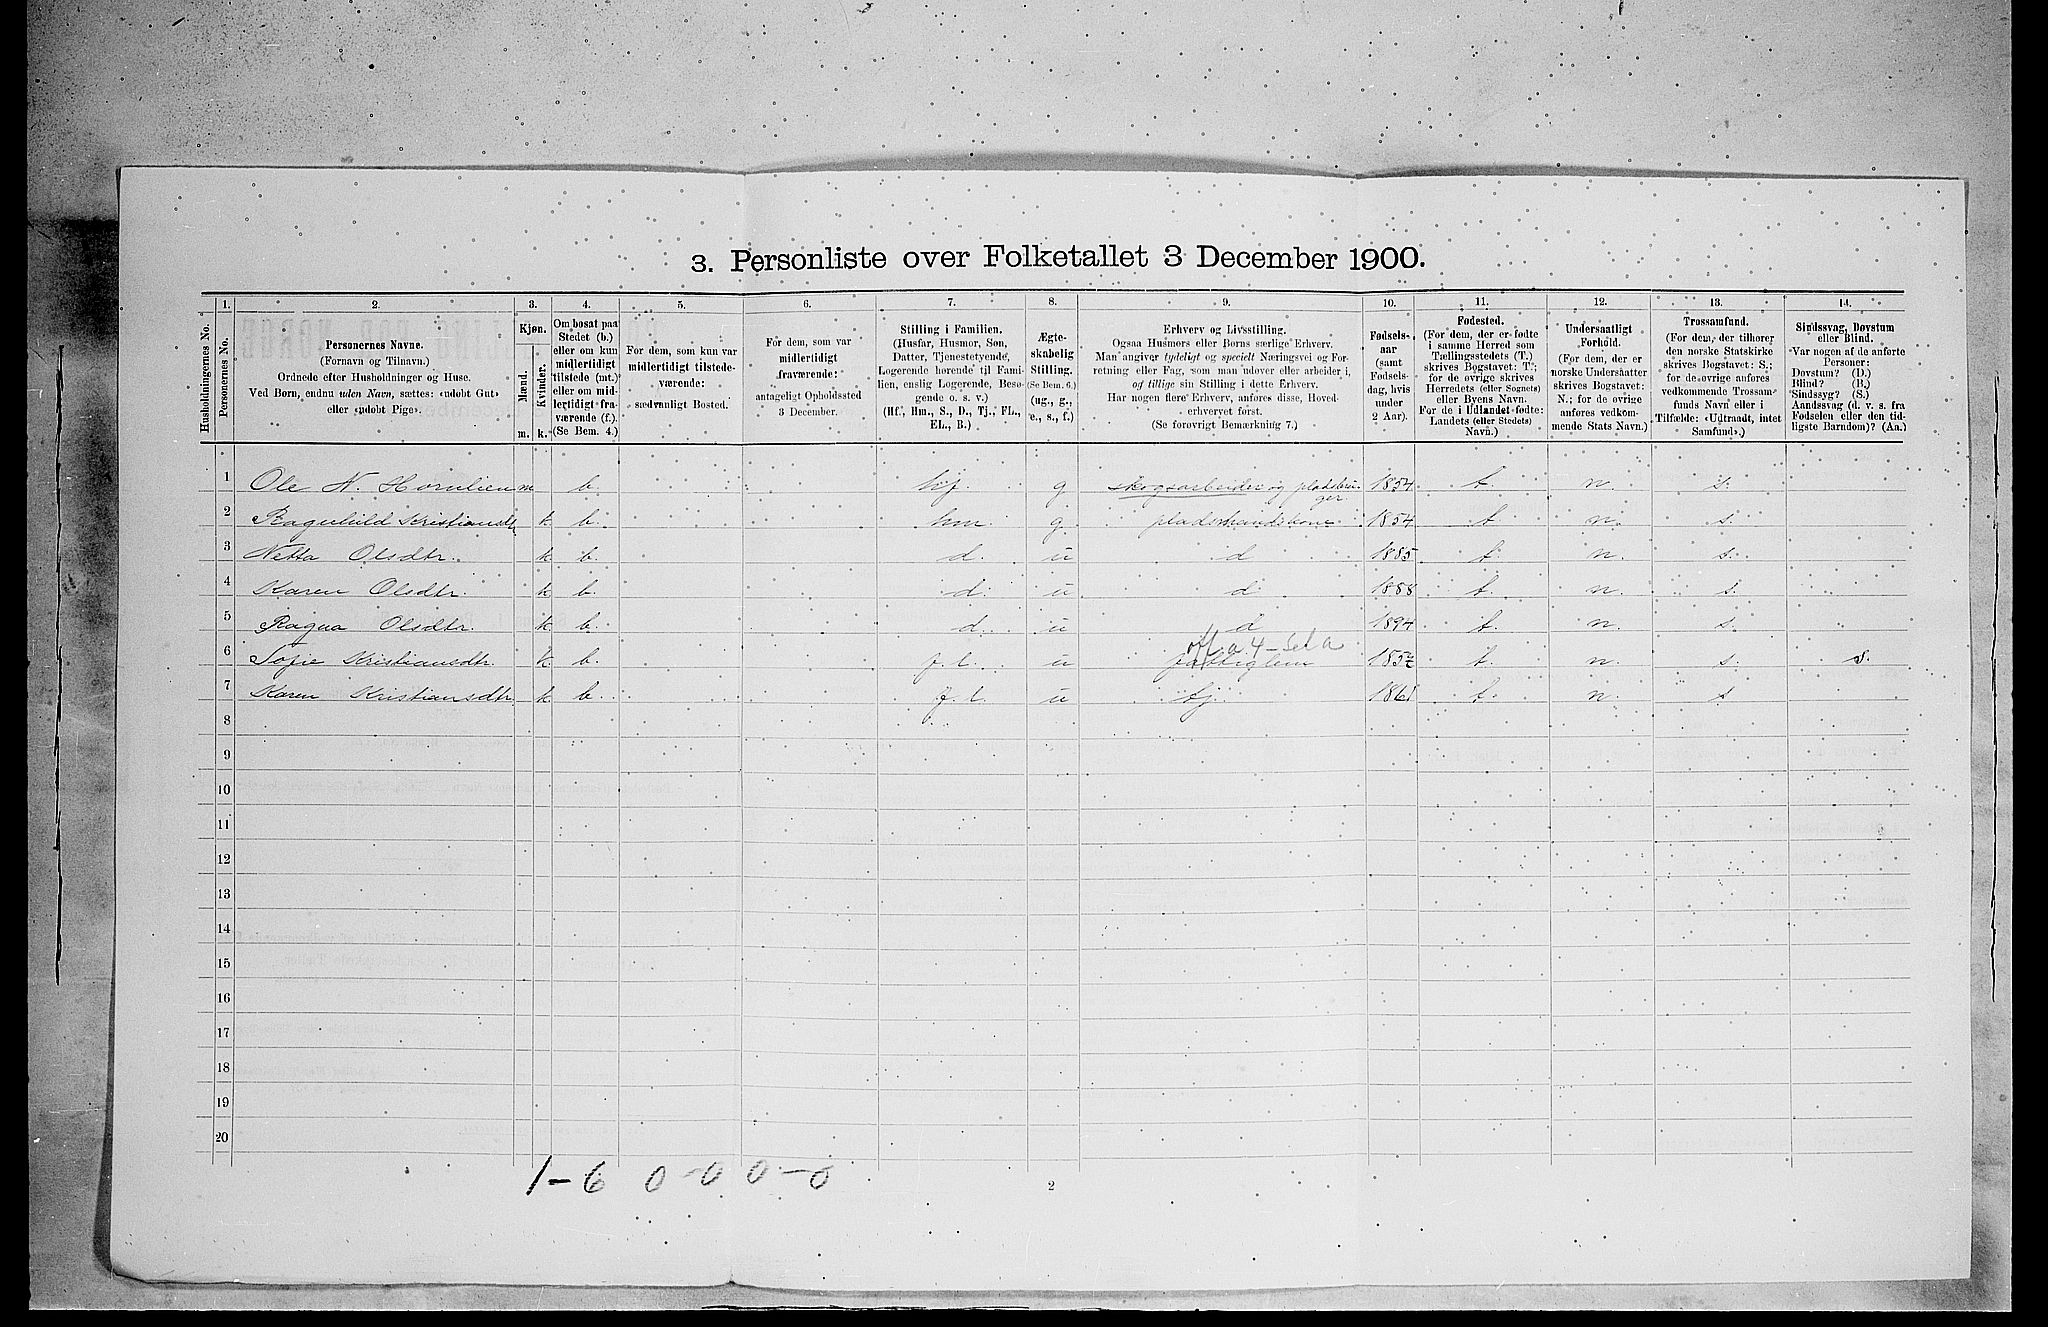 3. Personliste over Folketallet 3 December 1900.
Husholdningernes No.
1.
Personernes No.
2.
Personernes Navne.
(Fornavn og Tilnavn.)
Ordnede efter Husholdninger og Huse.
Ved Børn, endnu uden Navn, sættes: «udøbt Gut»
eller «udøbt Pige».
3.
Kjøn.
Mænd.
Kvinder.
m. k.
4.
Om bosat paa
Stedet (b.)
eller om kun
midlertidigt
tilstede (mt.)
eller om mid-
lertidigt fra-
værende (f.)
(Se Bem. 4.)
5.
For dem, som kun var
midlertidigt tilstede-
værende:
sædvanligt Bosted.
6.
For dem, som var
midlertidigt
fraværende:
antageligt Opholdssted
3 December.
7.
Stilling i Familien.
(Husfar, Husmor, Søn,
Datter, Tjenestetyende,
Logerende hørende til Fami-
lien, enslig Logerende, Besø-
gende o. s. v.)
(Hf., Hm., S., D., Tj., FL.,
EL., B.)
8.
Ægte-
skabelig
Stilling.
(Se Bem. 6.)
(ug., g.,
e., s., f.)
9.
Erhverv og Livsstilling.
Ogsaa Husmors eller Børns særlige Erhverv.
Man angiver tydeligt og specielt Næringsvei og For-
retning eller Fag, som man udøver eller arbeider i,
og tillige sin Stilling i dette Erhverv.
Har nogen flere Erhverv, anføres disse, Hoved-
erhvervet først.
(Se forøvrigt Bemærkning 7.)
10.
Fødsels-
aar
(samt
Fødsels-
dag, hvis
under
2 Aar).
11.
Fødested.
(For dem, der er fødte
i samme Herred som
Tællingsstedets (T.)
skrives Bogstavet: T.;
for de øvrige skrives
Herredets (eller Sognets)
eller Byens Navn.
For de i Udlandet fødte:
Landets (eller Stedets)
Navn.)
12.
Undersaatligt
Forhold.
(For dem, der er
norske Undersaatter
skrives Bogstavet:
N.; for de øvrige
anføres vedkom-
mende Stats Navn.)
13.
Trossamfund.
(For dem, der tilhører
den norske Statskirke
skrives Bogstavet: S.;
for de øvrige anføres
vedkommende Trossam-
funds Navn eller i
Tilfælde: «Udtraadt, intet
Samfund».)
14.
Sindssvag, Døvstum
eller Blind.
Var nogen af de anførte
Personer:
Døvstum? (D.)
Blind? (B.)
Sindssyg? (S.)
Aandssvag (d. v. s. fra
Fødselen eller den tid-
ligste Barndom)? (Aa.)
1 Ole N. Hornlien m b. hf. g skogsarbeider og pladsbru- 1854 t. n. s.
ger
2 Ragnhild Kristiansdtr k b. hm. g. 1854 t n. s.
3 Netta Olsdtr. k b. d. u d 1885 t. n. s.
4 Karen Olsdtr. k b. d. u d. 1888 t. n. s.
5 Ragna Olsdtr. k b. d. u d 1894 t. n. s.
6 Sofie Kristiansdtr. k b. f. l. u fattiglem t. n. s. s.
7 Karen Kristiansdtr. k b. f. l. u tj. 1861 t. n. s.
8
9
10
11
12
13
14
15
16
17
18
19
20
1-6 0-0 0-0
2